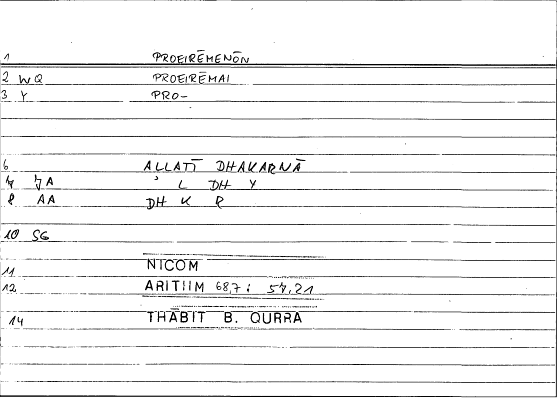 1 PROEIRĒMENŌN
2 WQ PROEIRĒMAI
3 Y PRO-
6 ALLATĪ DHAKARNĀ
ʾ L DH Y
8 AA DH K R
10 SG
11 NICOM
12 ARITIIM 68,7 : 57,21
14 THĀBIT B. QURRA